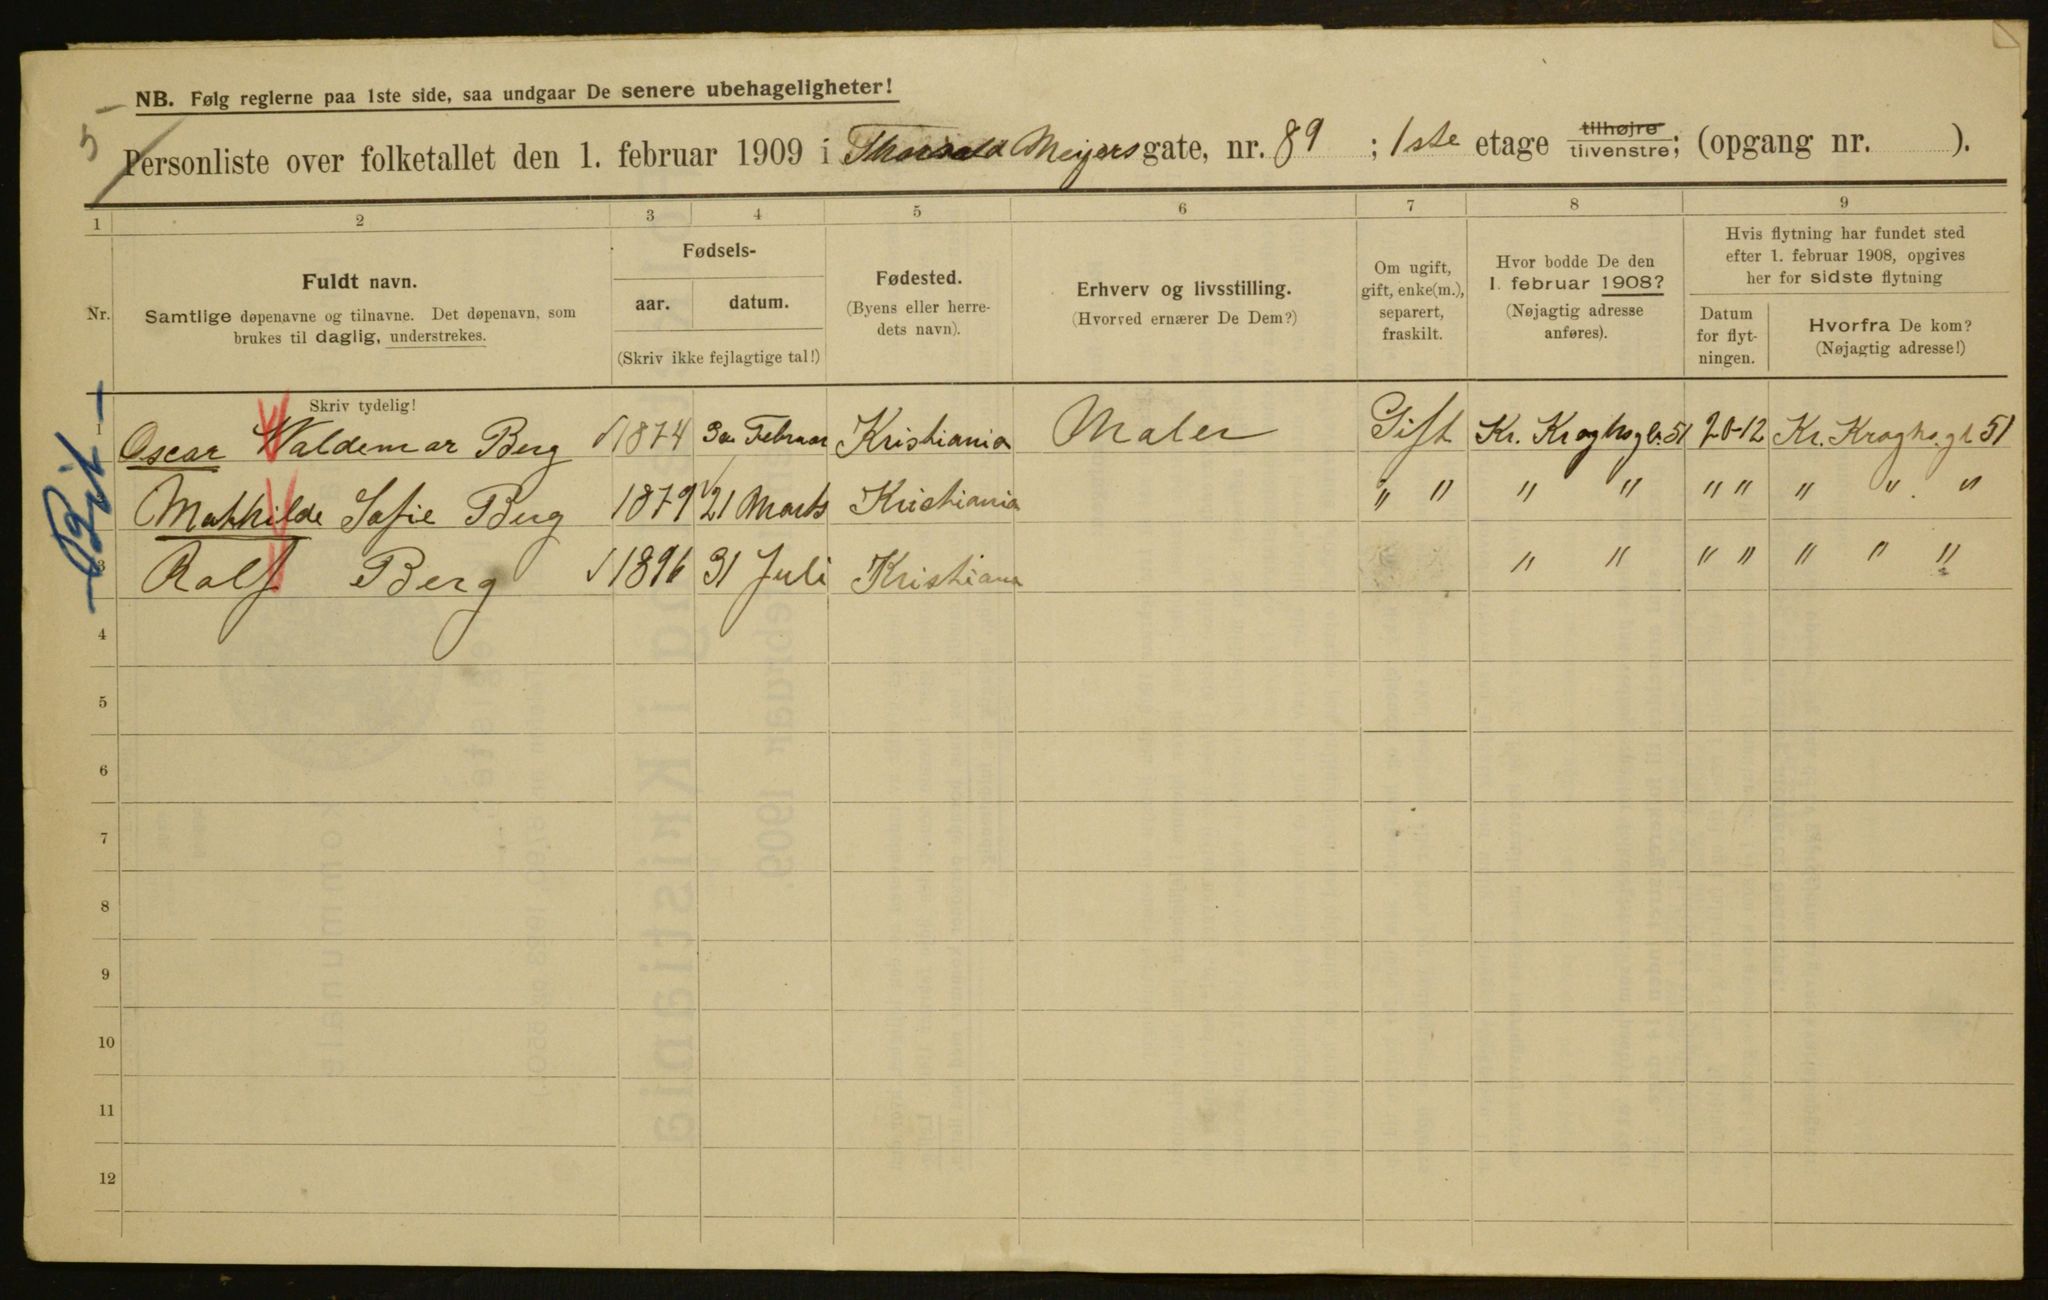 NB. Følg reglerne paa 1ste side, saa undgaar De senere ubehageligheter!
5
Personliste over folketallet den 1. februar 1909 i Thorvald Meyers gate, nr. 89 ; 1ste etage tilhøjre tilvenstre; (opgang nr. ).
1 2 3 4 5 6 7 8 9
Nr.
Fuldt navn.
Samtlige døpenavne og tilnavne. Det døpenavn, som
brukes til daglig, understrekes.
Fødsels-
aar. datum.
(Skriv ikke fejlagtige tal!)
Fødested.
(Byens eller herre-
dets navn).
Erhverv og livsstilling.
(Hvorved ernærer De Dem?)
Om ugift,
gift, enke(m.),
separert,
fraskilt.
Hvor bodde De den
1. februar 1908?
(Nøjagtig adresse
anføres).
Hvis flytning har fundet sted
efter 1. februar 1908, opgives
her for sidste flytning
Datum
for flyt-
ningen.
Hvorfra De kom?
(Nøjagtig adresse!)
Skriv tydelig!
1 Oscar Waldemar Berg 1874 Februar Kristiania Maler Gift Kr. Kroghsgt. 51 20-12 Kr. Kroghs.gt 51
2 Mathilde Sofie Berg 1879 21 Marts Kristiania " " " " " " " " "
3 Ralf Berg 1896 31 Juli Kristiana " " " " " " "
4
5
6
7
8
9
10
11
12